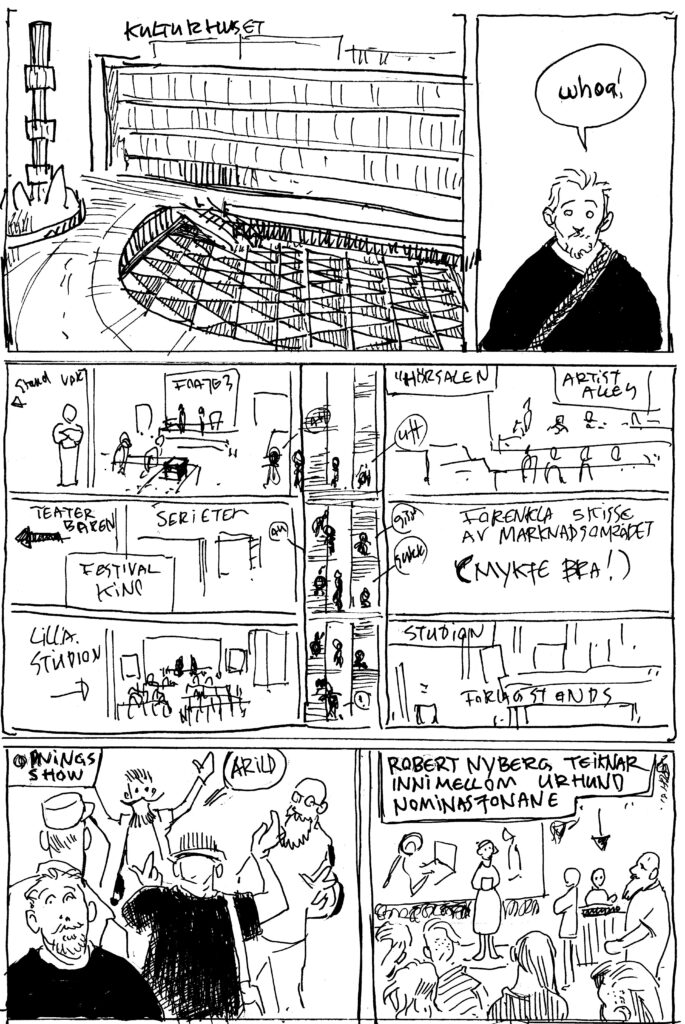 KULTURHUSET
whoa!
Stand VÅRT
FOAJE 3
HÖRSALEN
ARTIST
ALLEY
UFF
TEATER
BAREN
SERIETEK
FESTIVAL
KINO
FORENKLA SKISSE
AV MARKNADSOMRÅDET
(MYKJE BRA!)
SUKK
LILLA
STUDION
STUDION
FORLAGSTANDS
OPNINGS
SHOW
ARILD
ROBERT NYBERG TEIKNAR
INNIMELLOM URHUND
NOMINASJONANE